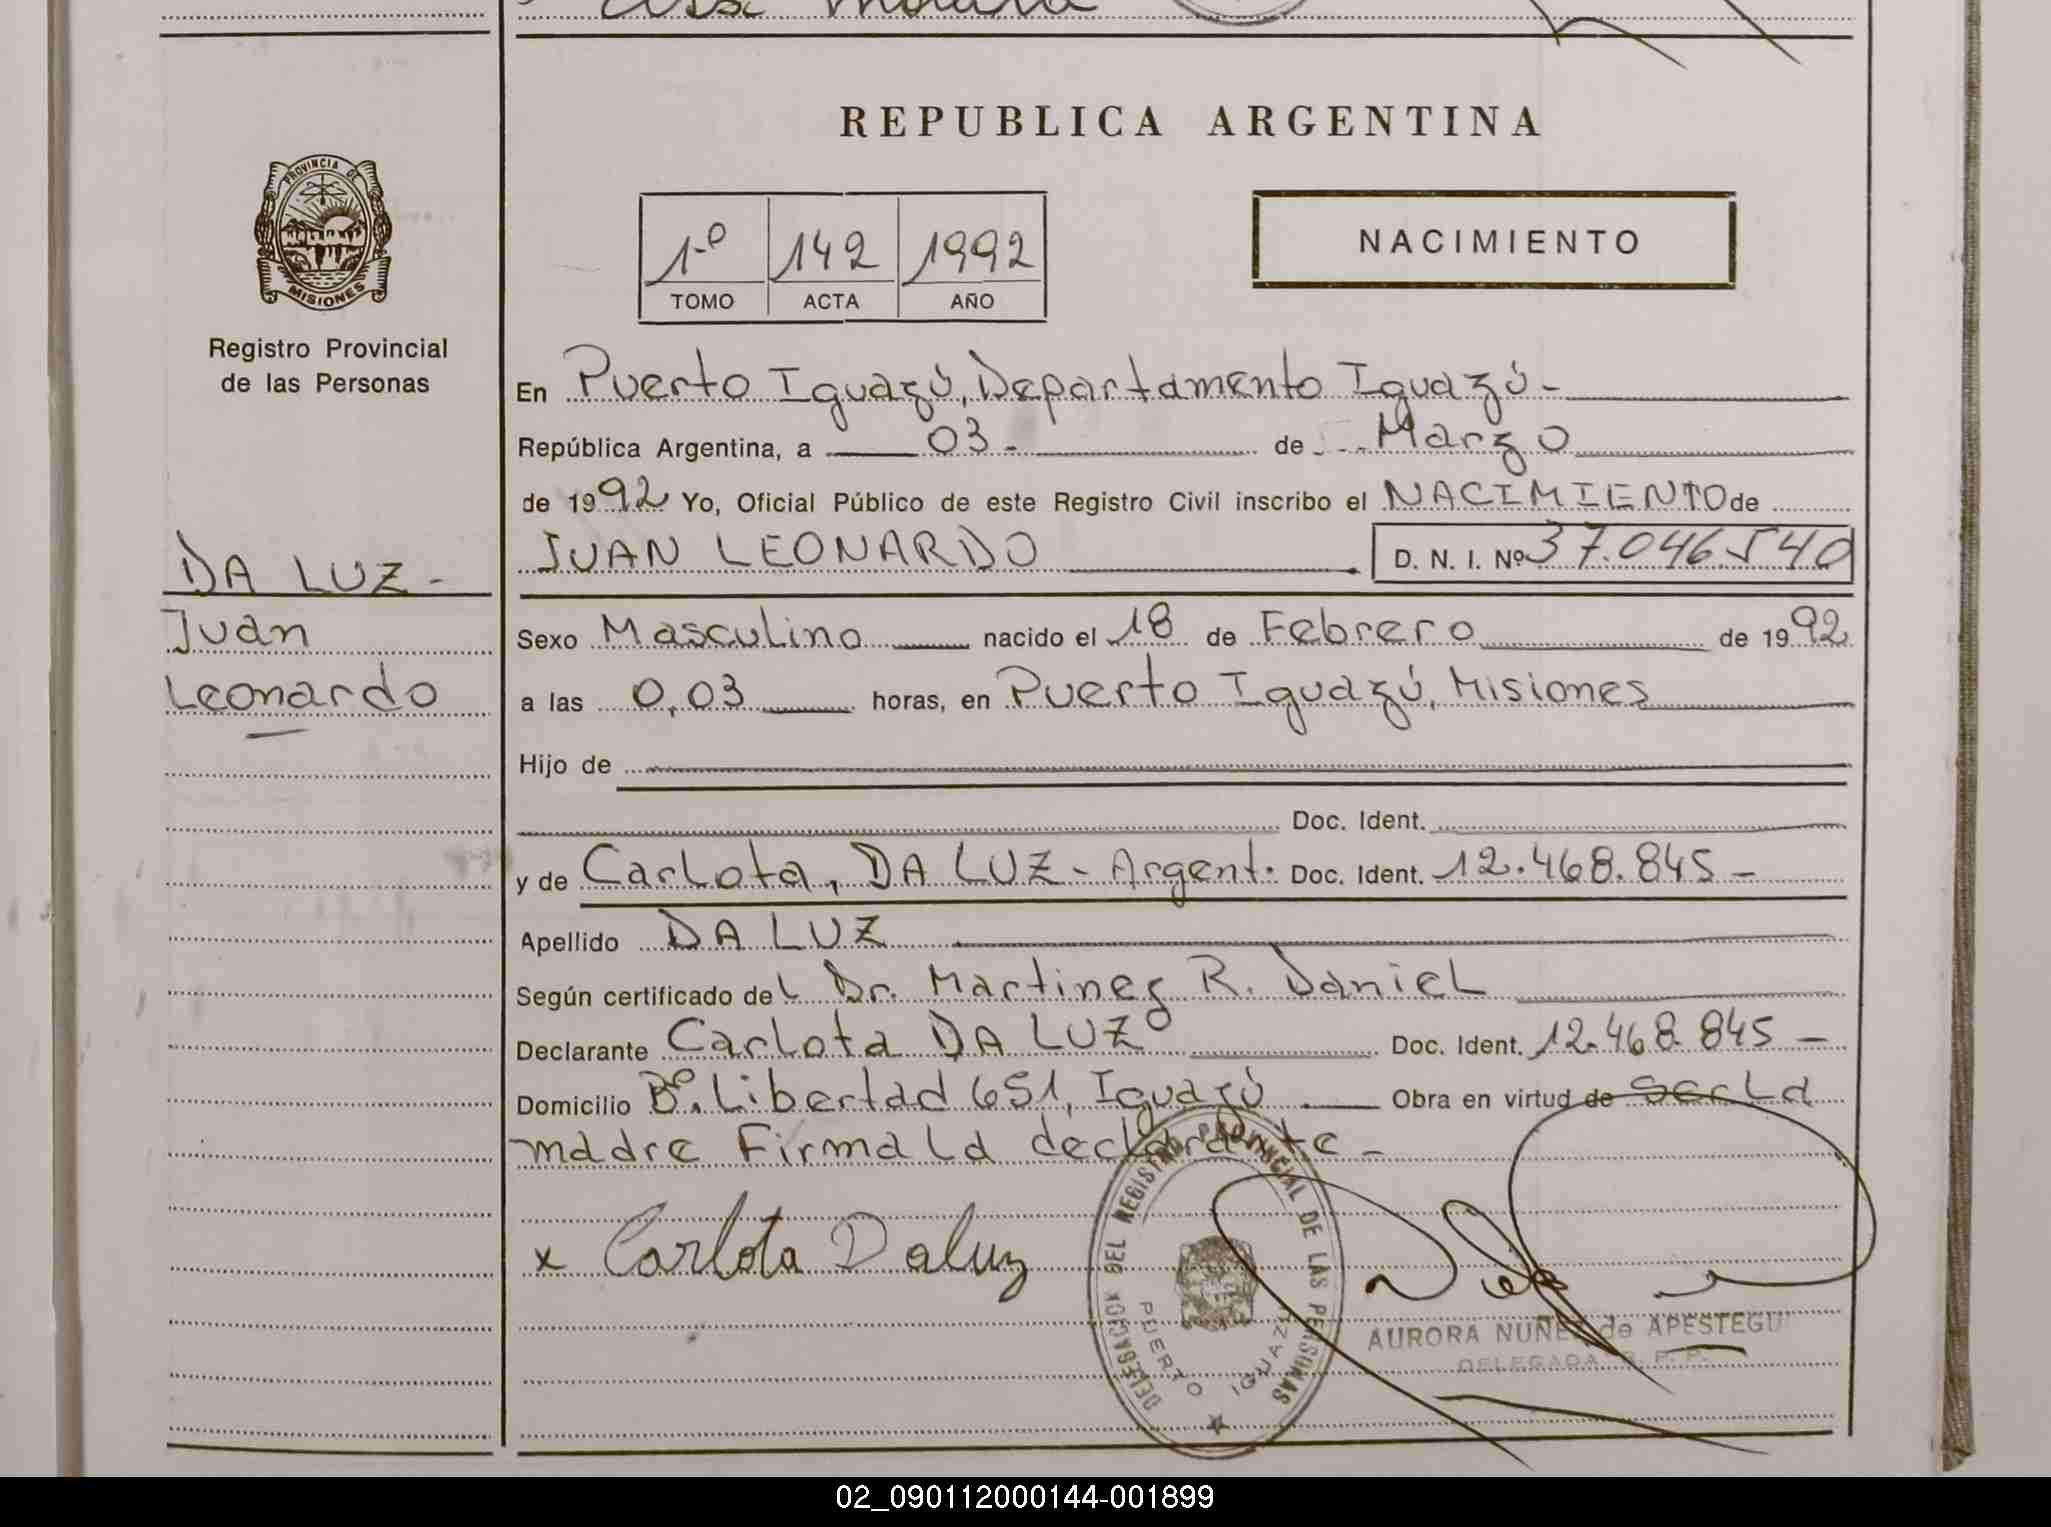 REPUBLICA ARGENTINA
PROVINCIA DE
MISIONES
Registro Provincial
de las Personas
1º 142 1992
TOMO ACTA AÑO
NACIMIENTO
En Puerto Iguazú, Departamento Iguazú -
República Argentina, a 03 - de Marzo
de 1992 Yo, Oficial Público de este Registro Civil inscribo el NACIMIENTO de
JUAN LEONARDO D. N. I. Nº 37.046.540
DA LUZ -
Juan
Leonardo
Sexo Masculino nacido el 18 de Febrero de 1992
a las 0,03 horas, en Puerto Iguazú, Misiones
Hijo de
Doc. Ident.
y de Carlota, DA LUZ - Argent. Doc. Ident. 12.468.845 -
Apellido DA LUZ
Según certificado del Dr. Martinez R. Daniel
Declarante Carlota DA LUZ Doc. Ident. 12.468.845 -
Domicilio Bº. Libertad 651, Iguazú Obra en virtud de ser La
madre Firma La declarante -
x Carlota Daluz
DELEGACION DEL REGISTRO PROVINCIAL DE LAS PERSONAS
PUERTO IGUAZU
AURORA NUÑEZ de APESTEGUI
DELEGADA R. P. P.
02_090112000144-001899